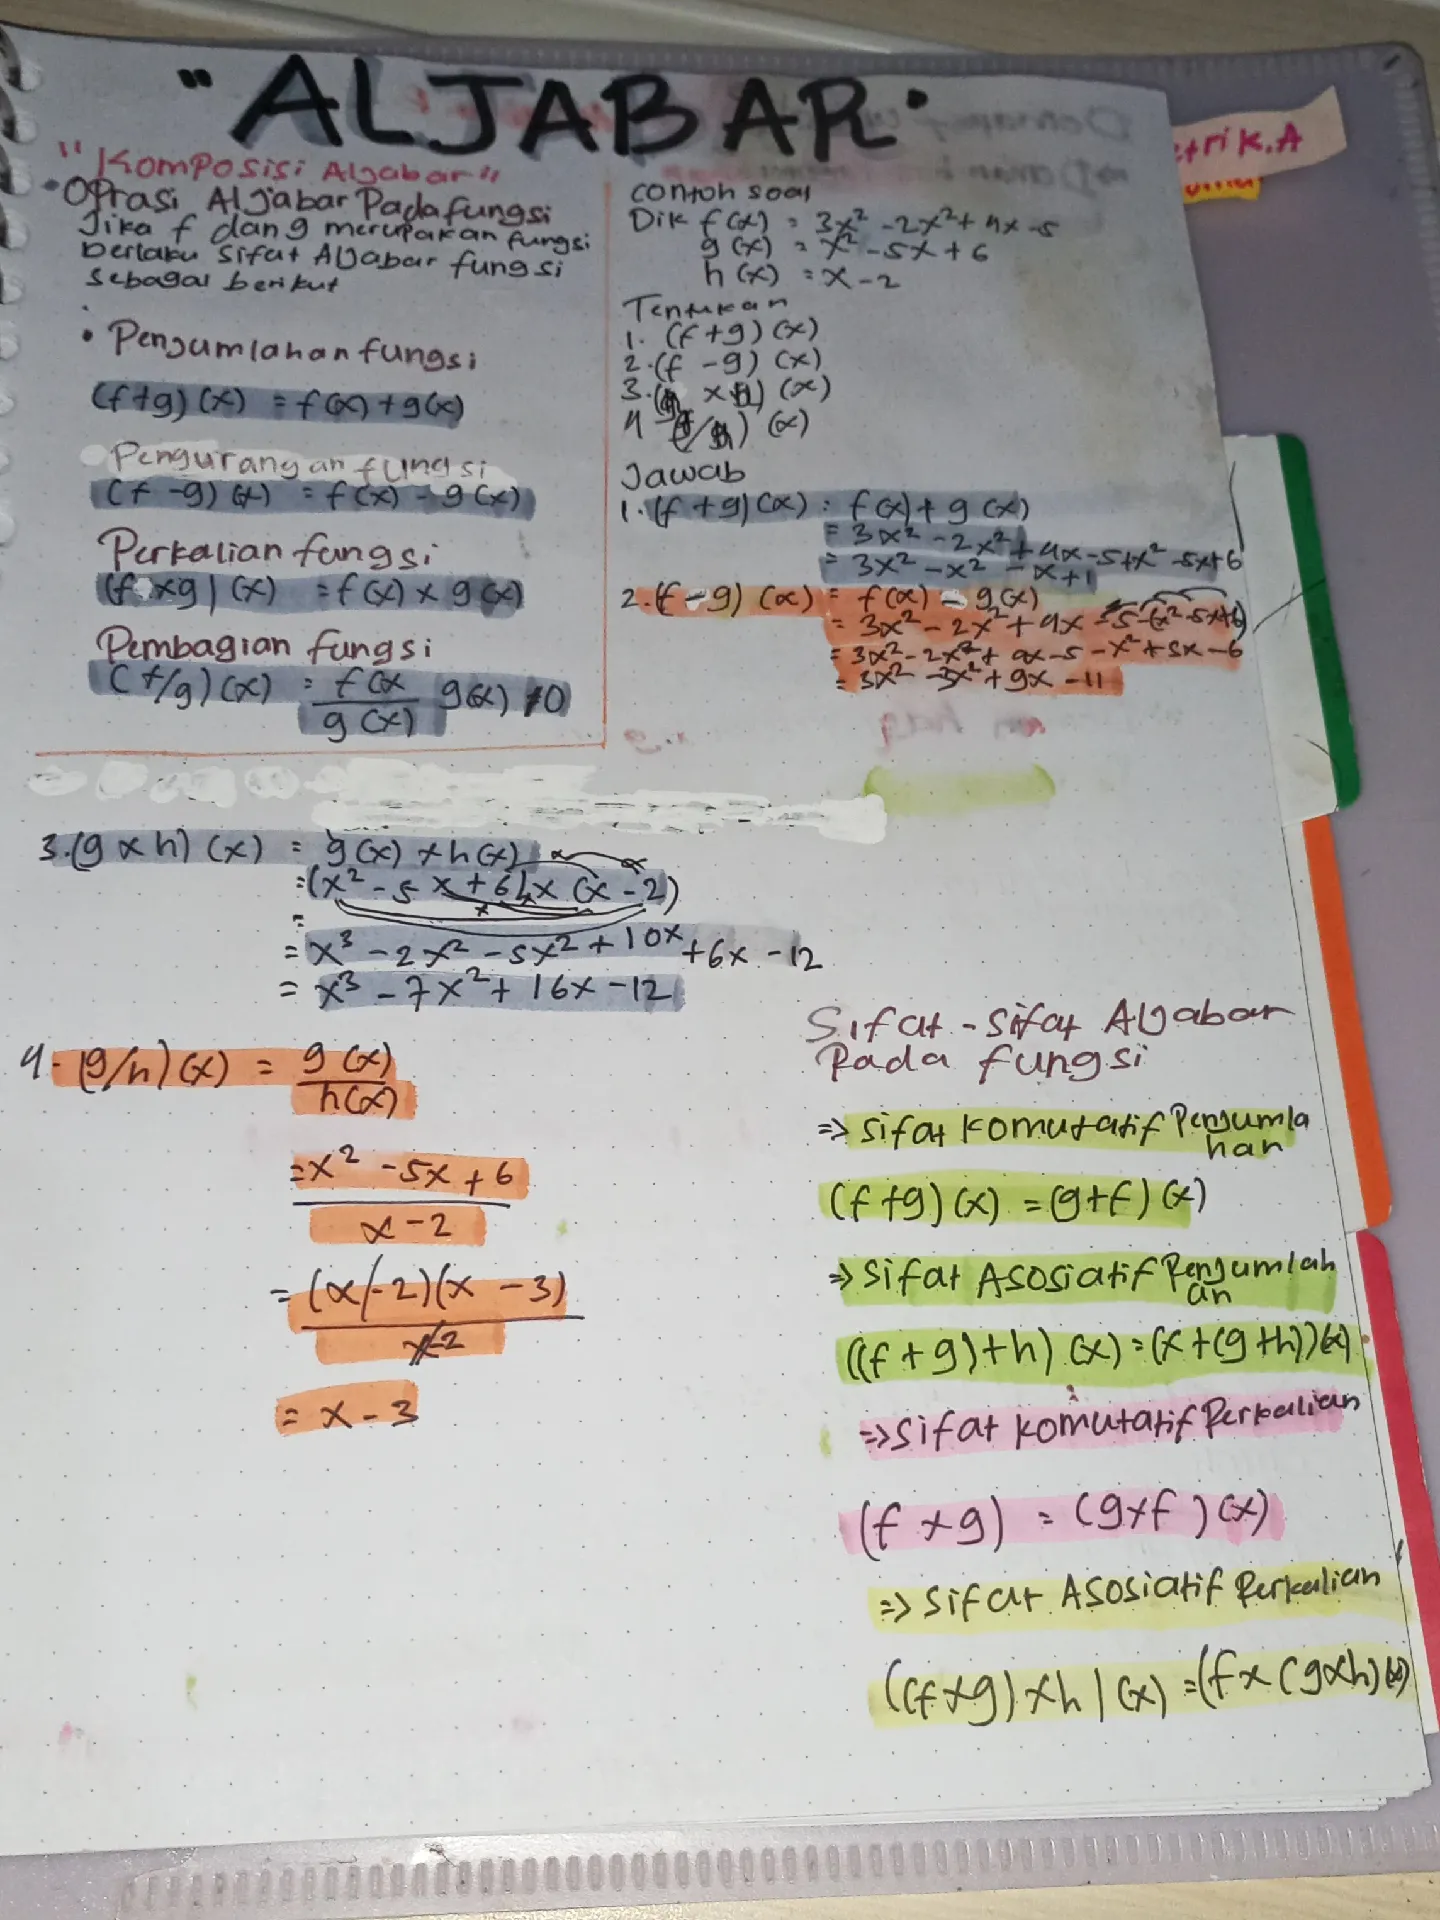 "ALJABAR"
etrik.A
"Komposisi Aljabar"
• Oprasi Aljabar Pada fungsi
Jika f dan g merupakan fungsi
berlaku sifat Aljabar fungsi
sebagai berikut
• Penjumlahan fungsi
(f+g) (x) = f(x) + g(x)
Pengurangan fungsi
(f -g) (x) = f(x) - g(x)
Perkalian fungsi
(f xg) (x) = f(x) x g(x)
Pembagian fungsi
(f/g) (x) = f(x
g(x) g(x) ≠0
contoh soal
Dik f(x) = 3x² -2x²+ 4x -5
g(x) = x² -5x + 6
h(x) = x - 2
Tentukan
1. (f +g) (x)
2. (f -g) (x)
3. (x) (x)
4 (/) (x)
Jawab
1. (f +g) (x) = f(x) + g(x)
= 3x² - 2x² + 4x -5 +x² -5x+6
= 3x² -x² - x +1
2. (f -g) (x) = f(x) - g(x)
= 3x² - 2x² + 4x -5 -(x² -5x+6)
= 3x² - 2x² + 4x -5 -x² + 5x -6
= 3x² -3x² + 9x -11
3. (g x h) (x) = g(x) x h(x)
=(x² - 5 x + 6) x (x - 2)
=
= x³ - 2x² - 5x² + 10x +6x -12
= x³ - 7x² + 16x -12
4. (g/h) (x) = g (x)
h(x)
= x² -5x + 6
x - 2
= (x-2)(x - 3)
x-2
= x - 3
Sifat - sifat Aljabar
Pada fungsi
=> sifat komutatif Penjumla
han
(f +g) (x) = (g+f) (x)
=> sifat Asosiatif Penjumlah
an
((f + g) + h) (x) = (x + (g +h)) (x)
=> sifat komutatif Perkalian
(f x g) = (gxf) (x)
=> sifat Asosiatif Perkalian
((f x g) x h) (x) = (f x (g x h) (x)